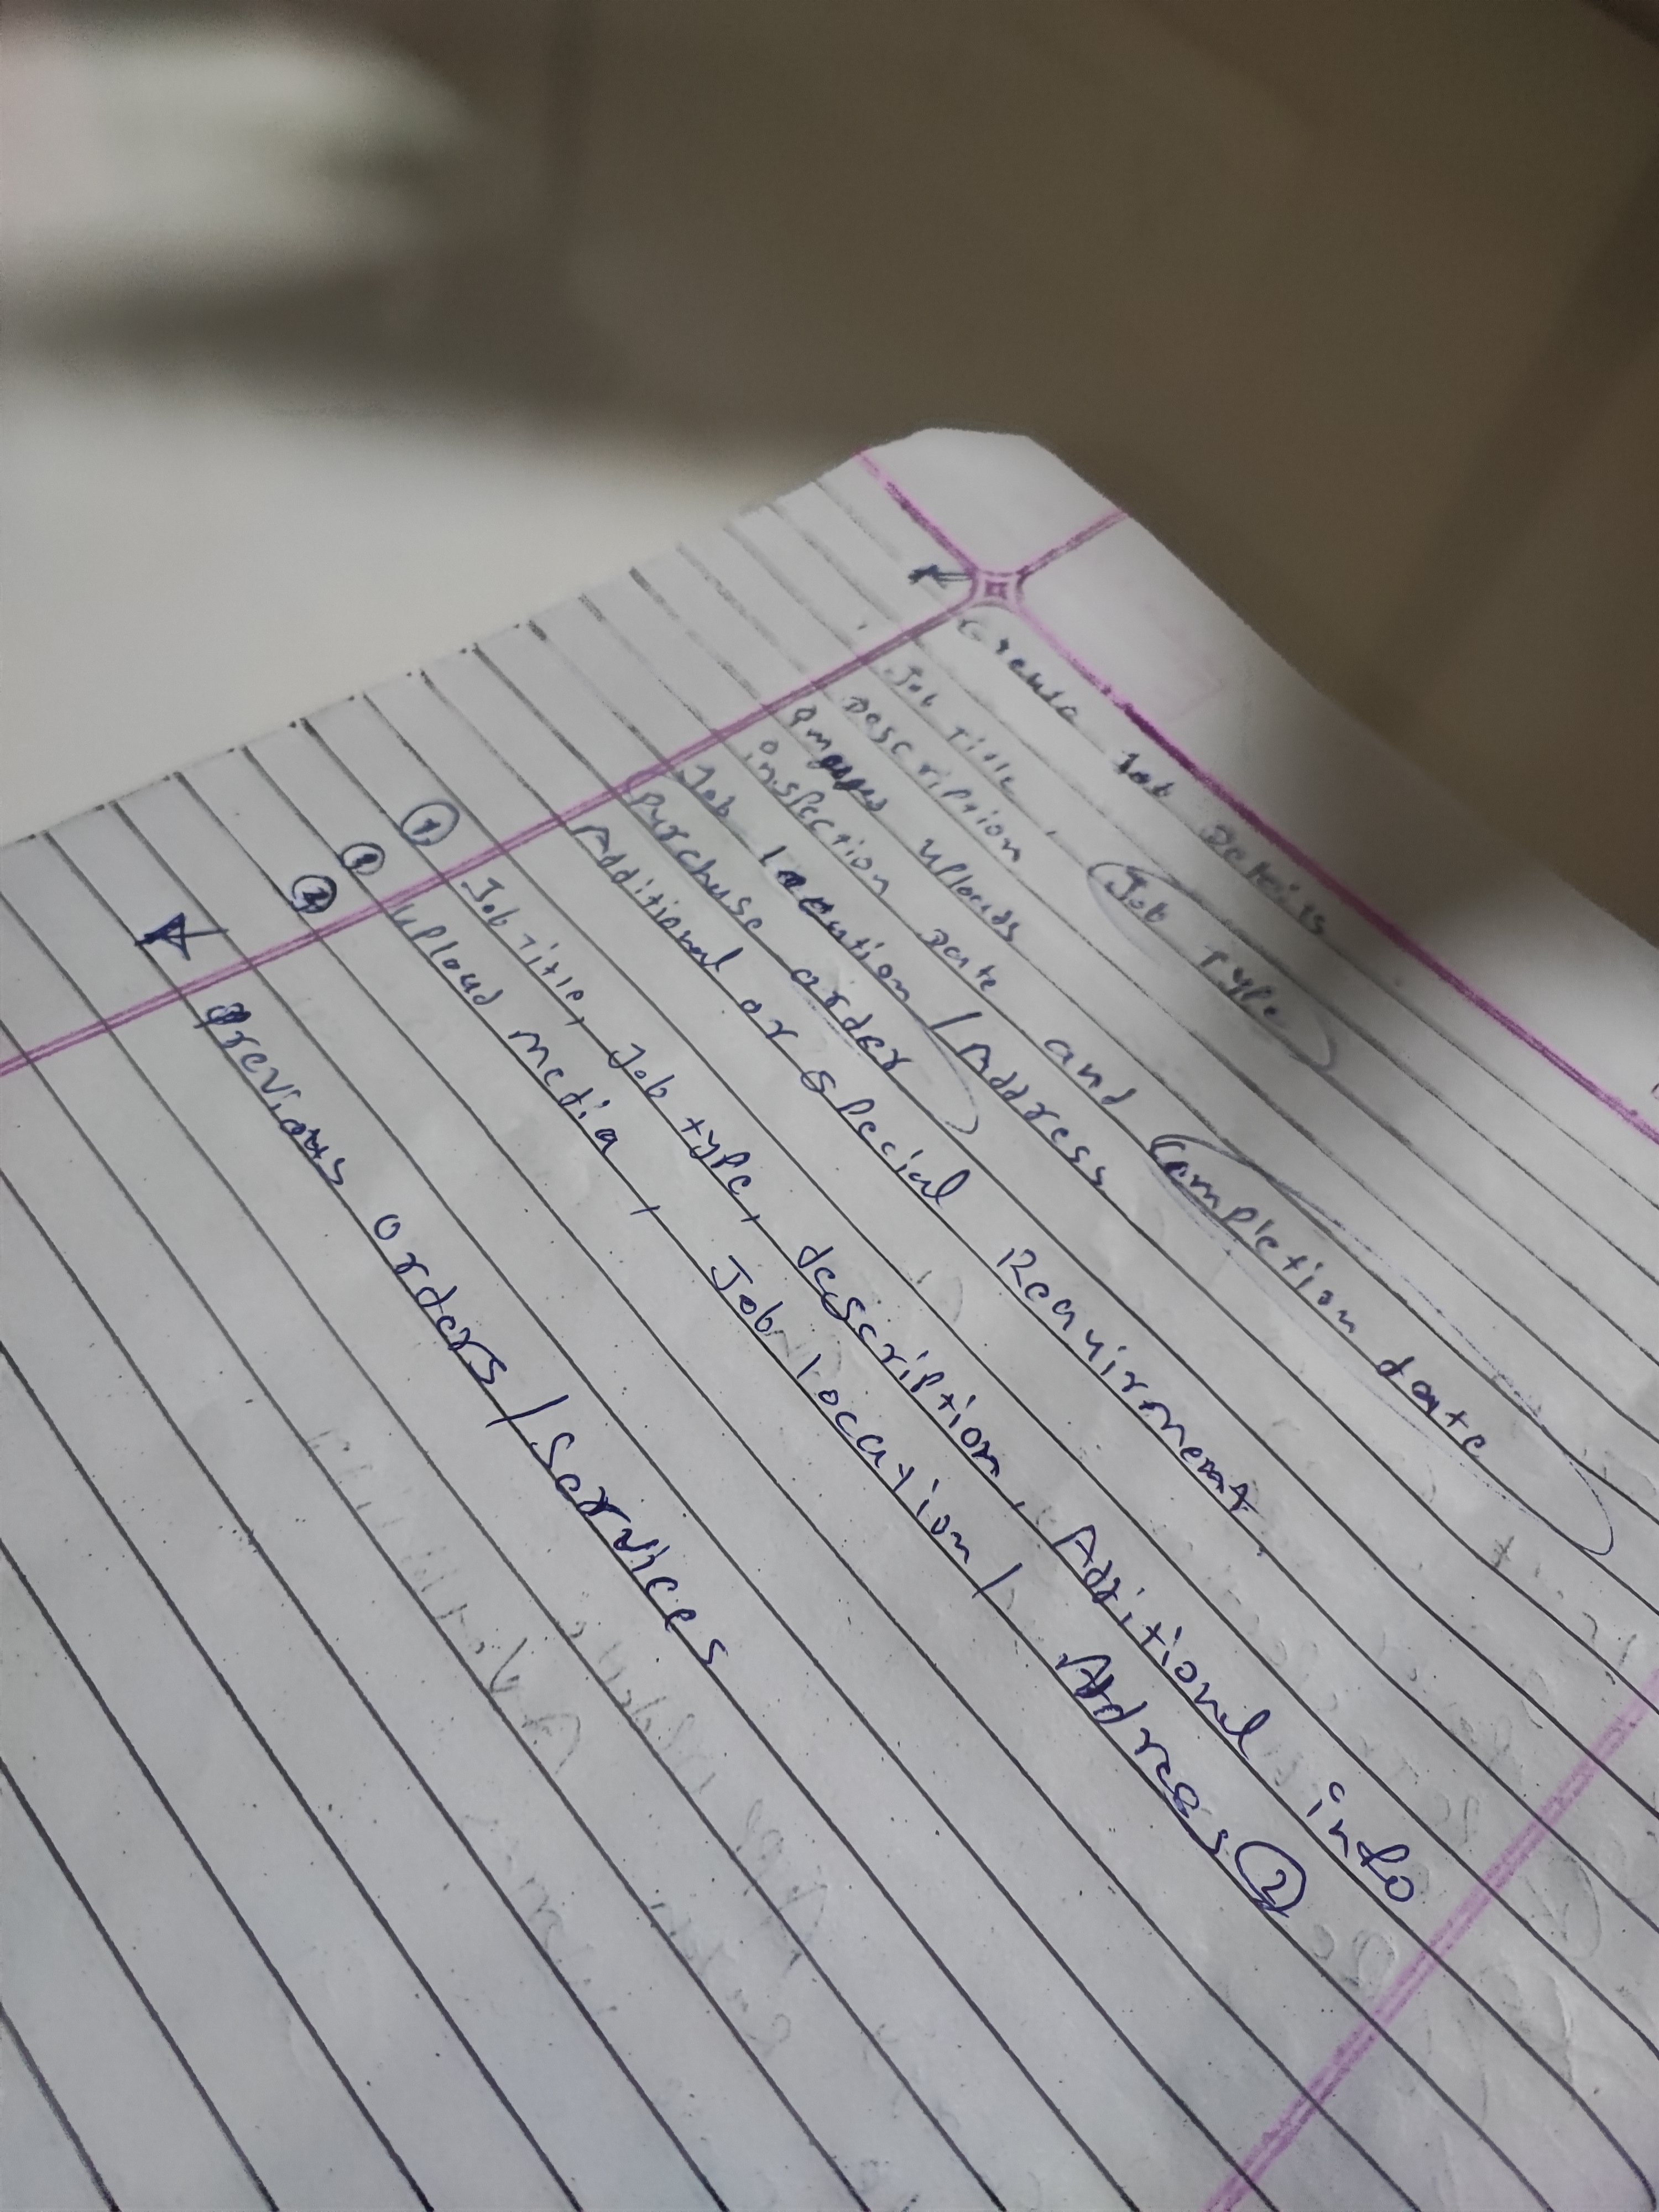 Create Job Details
Job Title, Job Type
Description
images uploads
inspection Date and Completion date
Job location / Address
Purchase order
Additional or special Requirment
① Job Title, Job type, description, Additional info
② upload media, Job location / Address ②
③
Previous orders / services